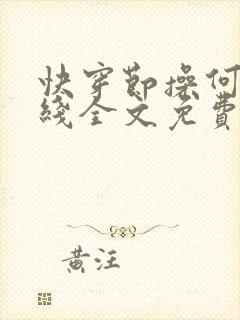 快穿节操何
綫全文免費
黄汪